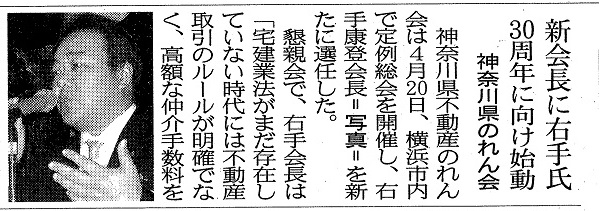 新会長に右手氏
30周年に向け始動
神奈川県のれん会
神奈川県不動産のれん
会は4月20日、横浜市内
で定例総会を開催し、右
手康登会長＝写真＝を新
たに選任した。
懇親会で、右手会長は
「宅建業法がまだ存在し
ていない時代には不動産
取引のルールが明確でな
く、高額な仲介手数料を